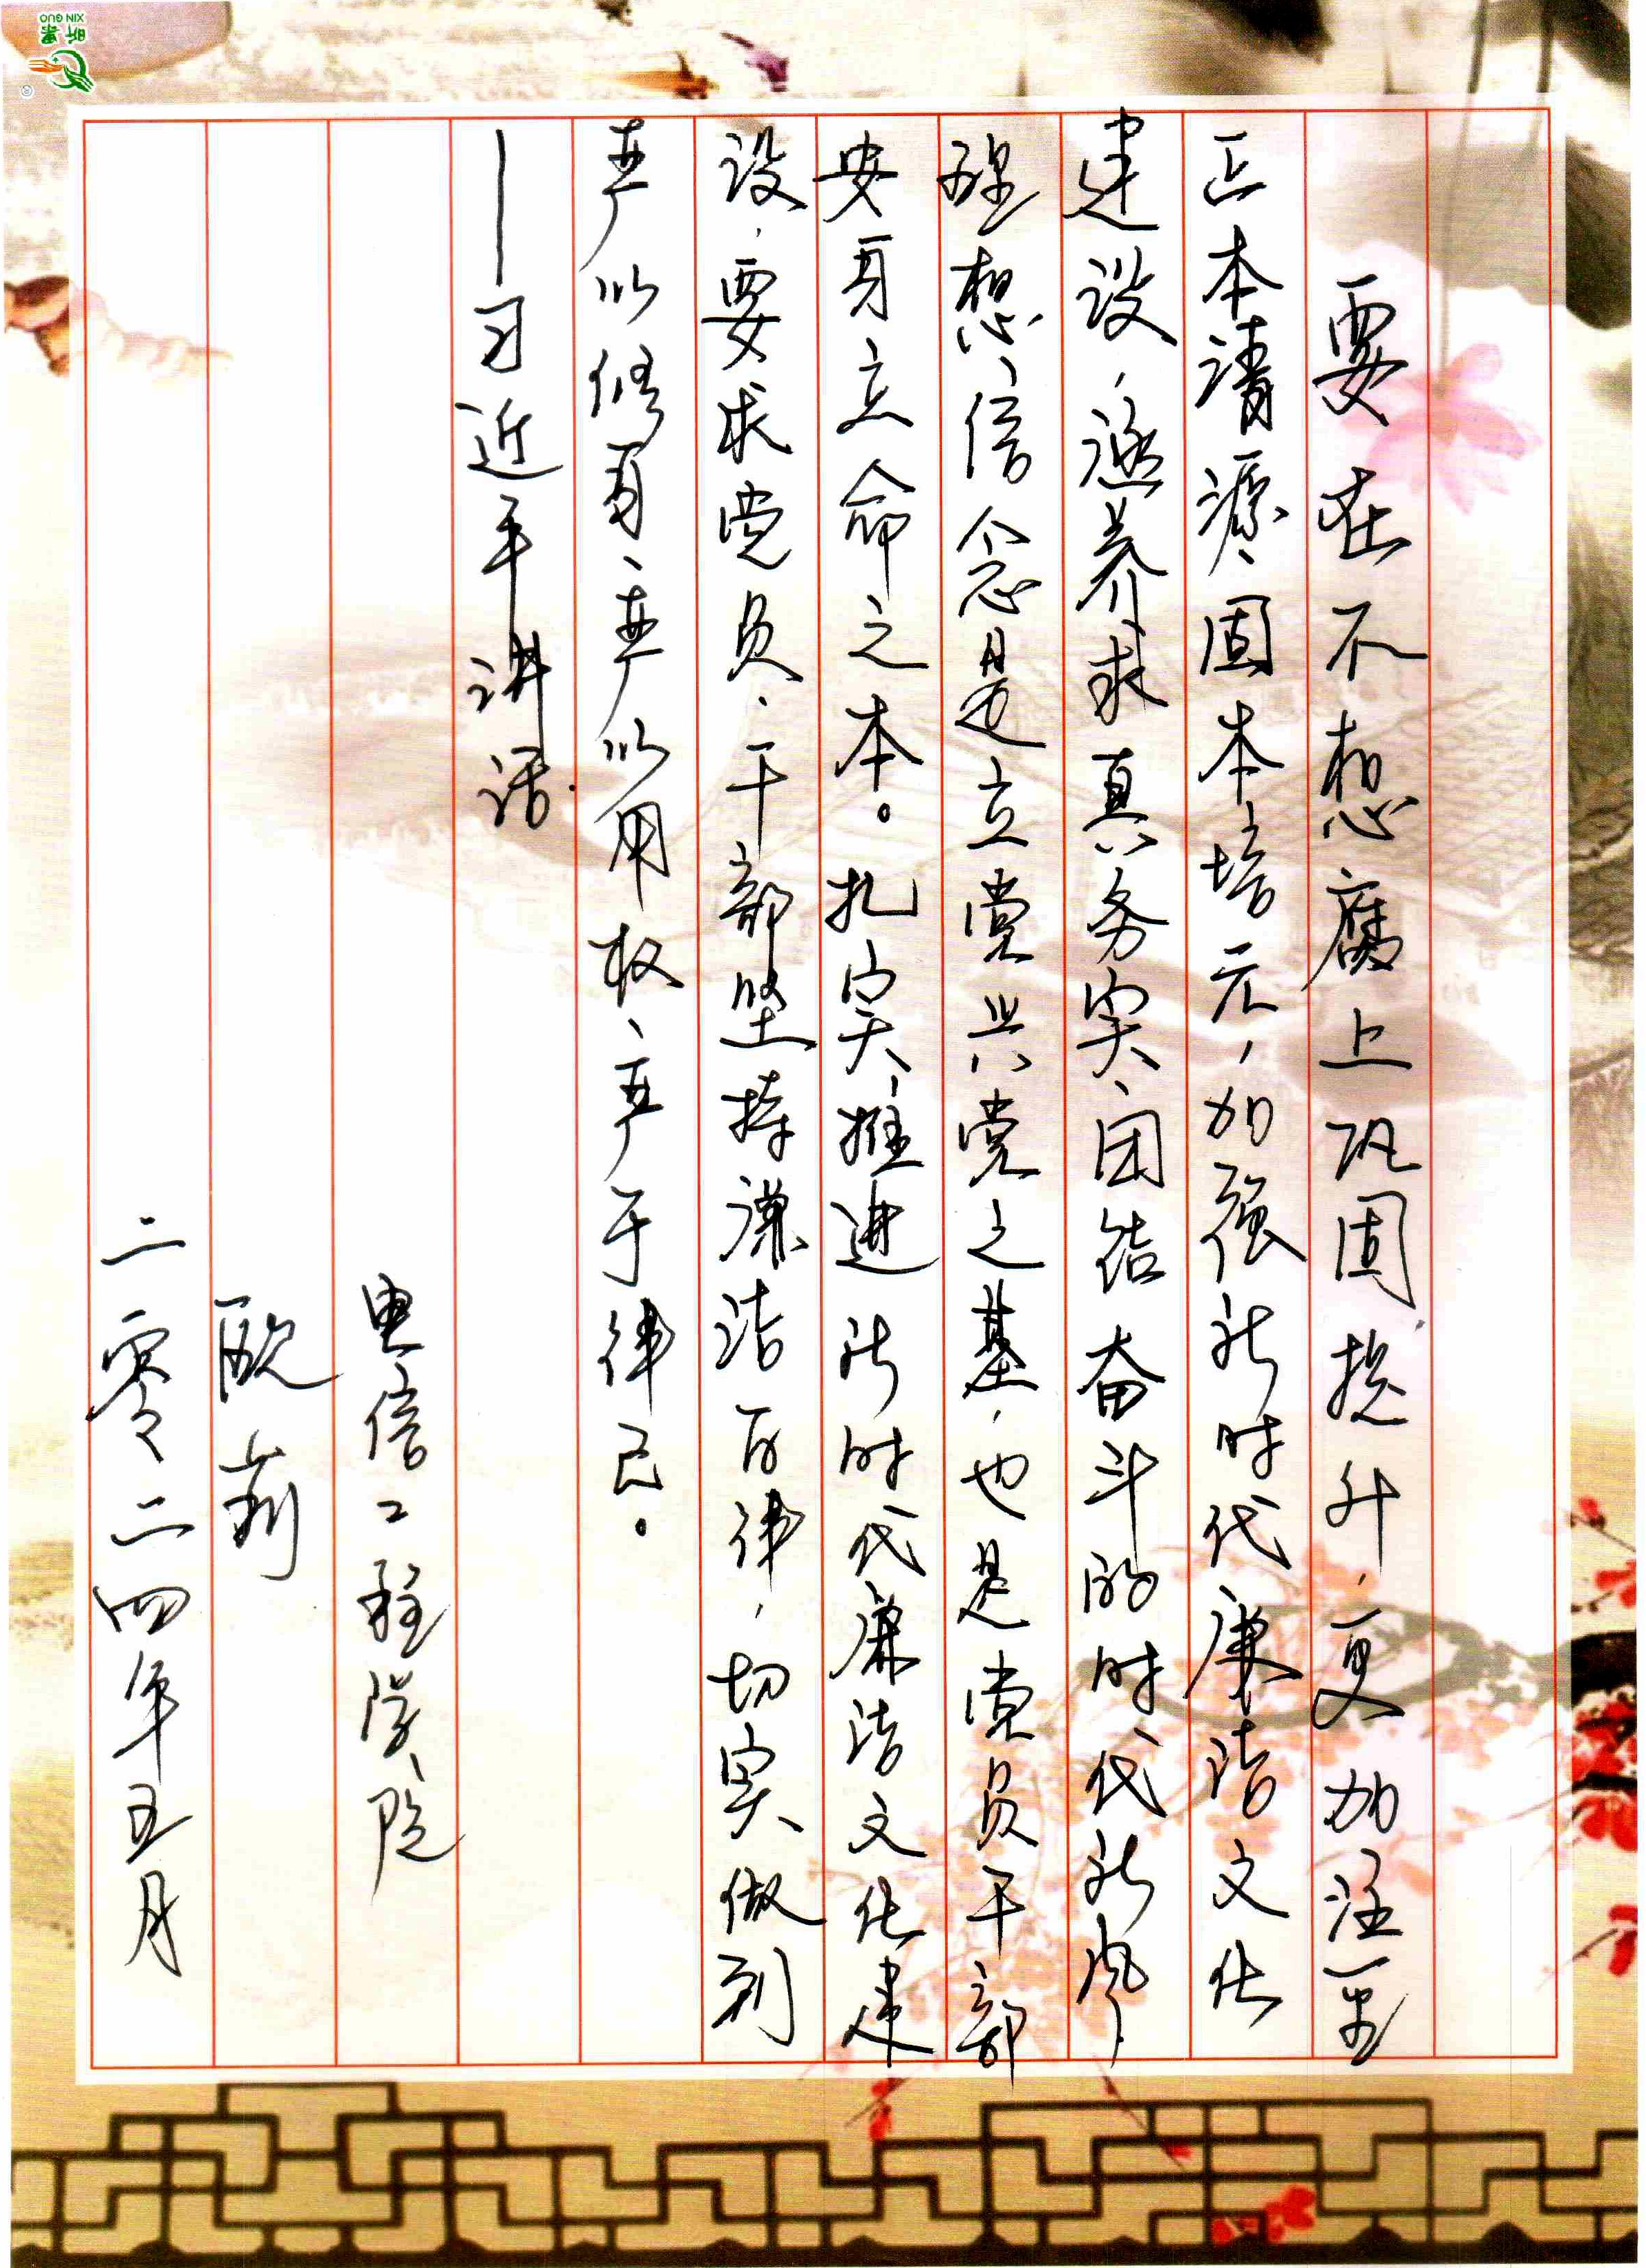 要在不想腐上巩固提升，更加注重
正本清源、固本培元，加强新时代廉洁文化
建设，涵养求真务实、团结奋斗的时代新风
理想信念是立党兴党之基，也是党员干部
安身立命之本。扎实推进新时代廉洁文化建
设，要求党员、干部坚持廉洁自律，切实做到
严以修身、严以用权、严于律己。
——习近平讲话
电信工程学院
二零二四年五月
昕果
XIN GUO